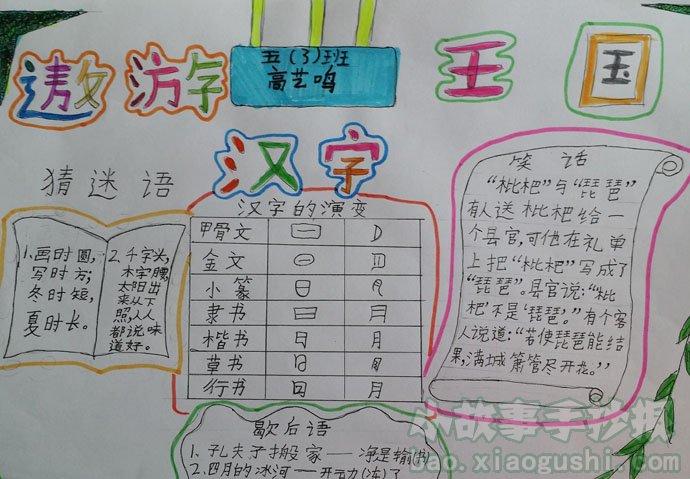 遨游字
五(3)班
高艺鸣
王国
汉字
猜迷语
1.画时圆,
写时方;
冬时短,
夏时长。
2.千字头,
木字腰,
太阳出
来从下
照,人人
都说味
道好。
汉字的演变
甲骨文
金文
小篆
隶书 日 月
楷书 日 月
草书
行书 日 月
笑话
“枇杷”与“琵琶”
有人送枇杷给一
个县官,可他在礼单
上把“枇杷”写成了
“琵琶”。县官说:“枇
杷’不是‘琵琶’。”有个客
人说道:“若使琵琶能结
果,满城箫管尽开花。”
歇后语
1.孔夫子搬家——净是输(书)
2.四月的冰河——开动(冻)了
小故事手抄报
bao.xiaogushi.com